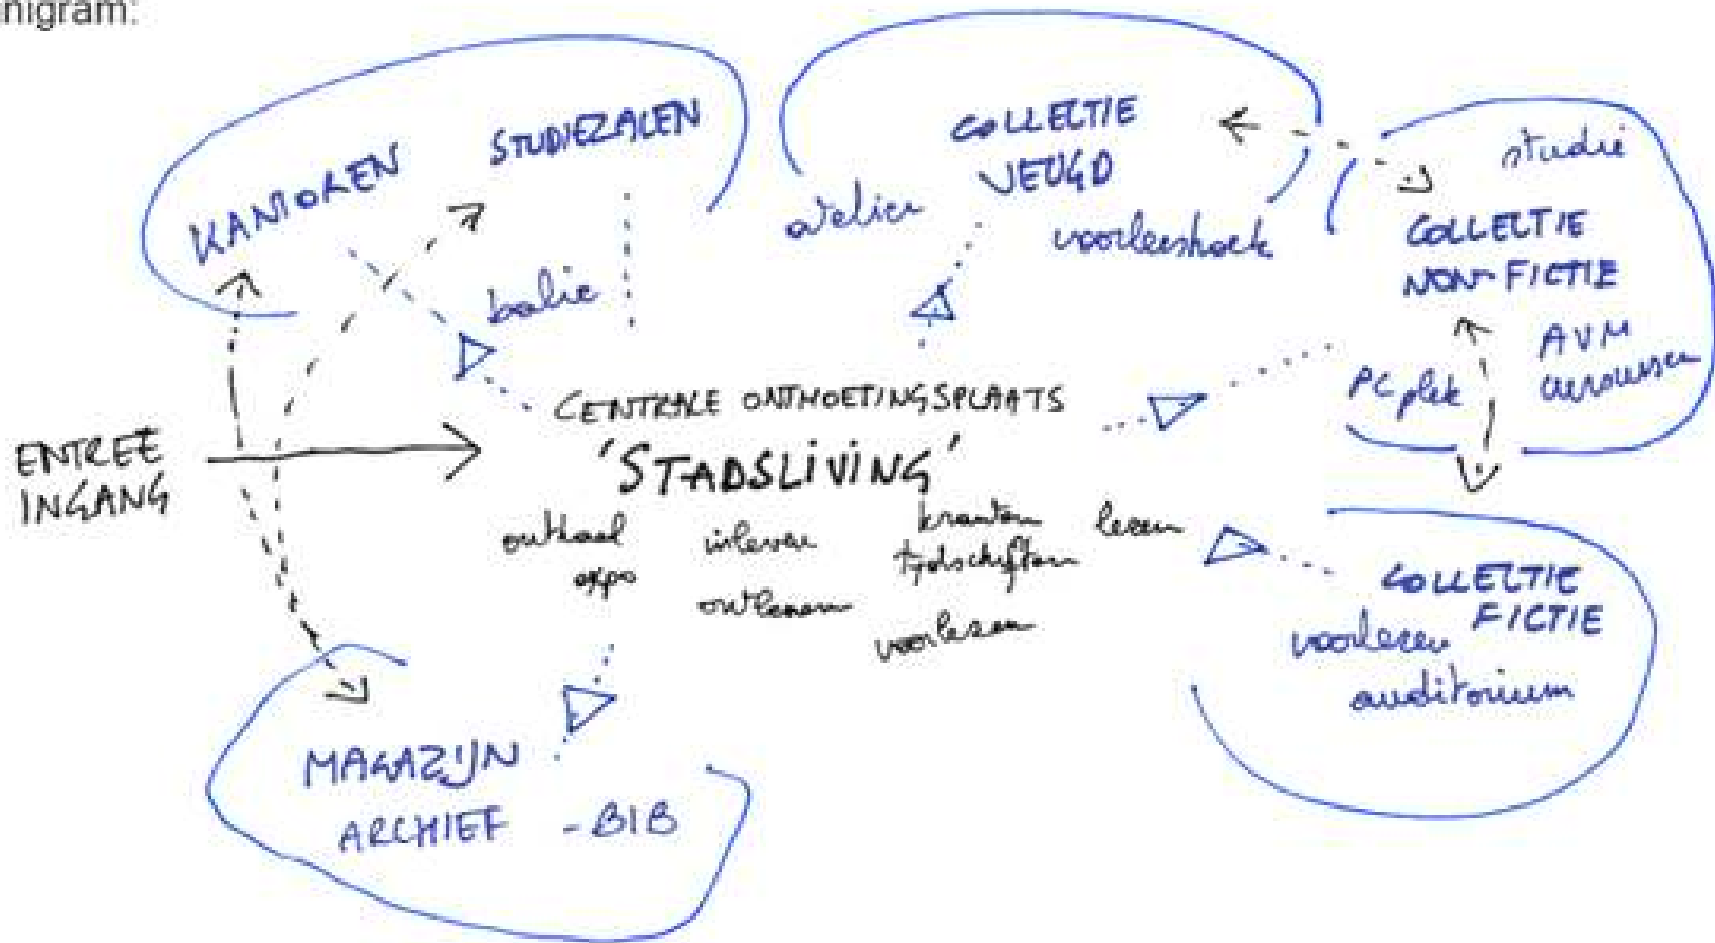 nigram:
KANTOREN
STUDIEZALEN
balie
COLLECTIE
JEUGD
atelier
voorleeshoek
studie
COLLECTIE
NON-FICTIE
AVM
PC plek
ENTREE
INGANG
CENTRALE ONTMOETINGSPLAATS
'STADSLIVING'
onthaal
expo
inleveren
ontlenen
kranten
tijdschriften
lezen
voorlezen
COLLECTIE
FICTIE
voorlezen
auditorium
MAGAZIJN
ARCHIEF - BIB